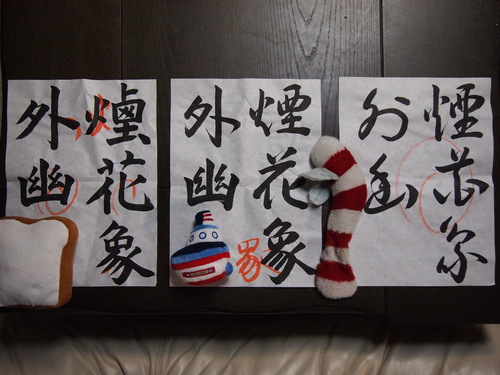 煙花象
外幽
煙花象
外幽
煙花象
外幽